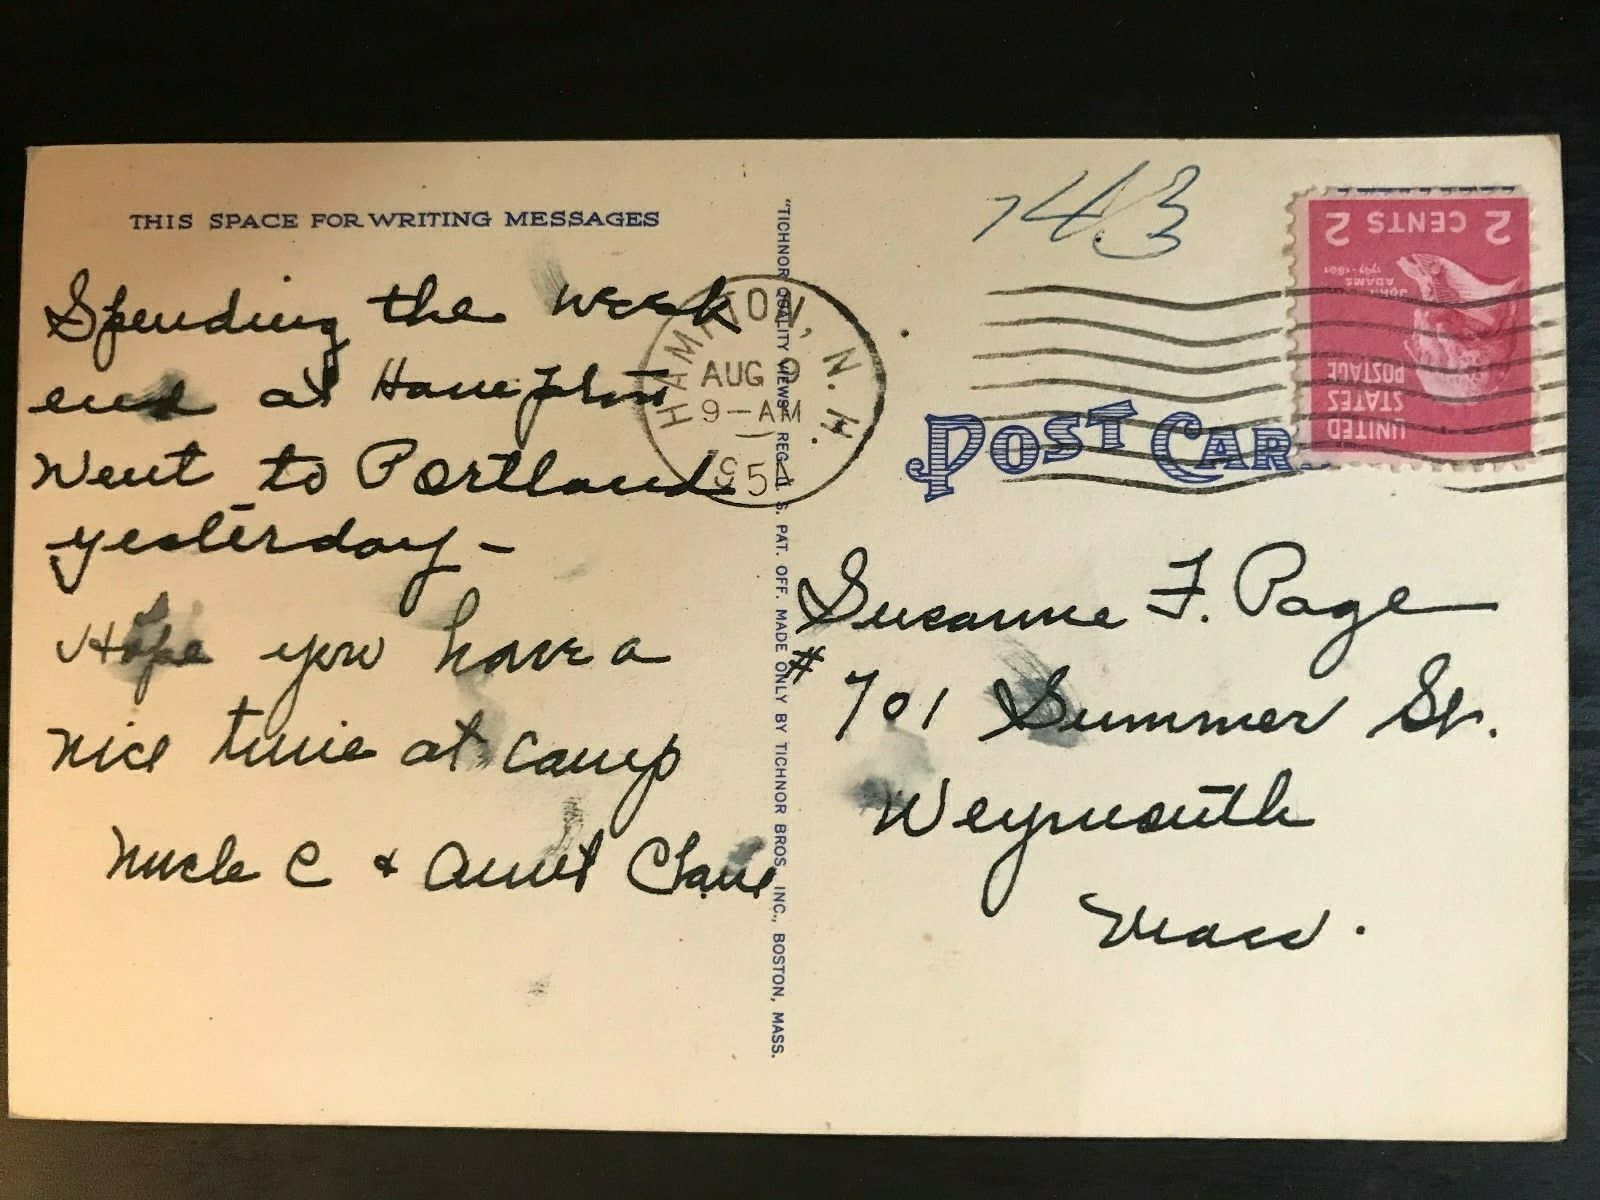 THIS SPACE FOR WRITING MESSAGES
Spending the week
end at Hampton
Went to Portland
yesterday -
Hope you have a
nice time at camp
Uncle C & Aunt Clare
HAMPTON, N. H.
AUG 9
9-AM
1954
"TICHNOR QUALITY VIEWS" REG. U. S. PAT. OFF. MADE ONLY BY TICHNOR BROS. INC., BOSTON, MASS.
743
2 CENTS 2
JOHN ADAMS
1797-1801
UNITED
STATES
POSTAGE
POST CARD
Suzanne F. Page
# 701 Summer St.
Weymouth
Mass.